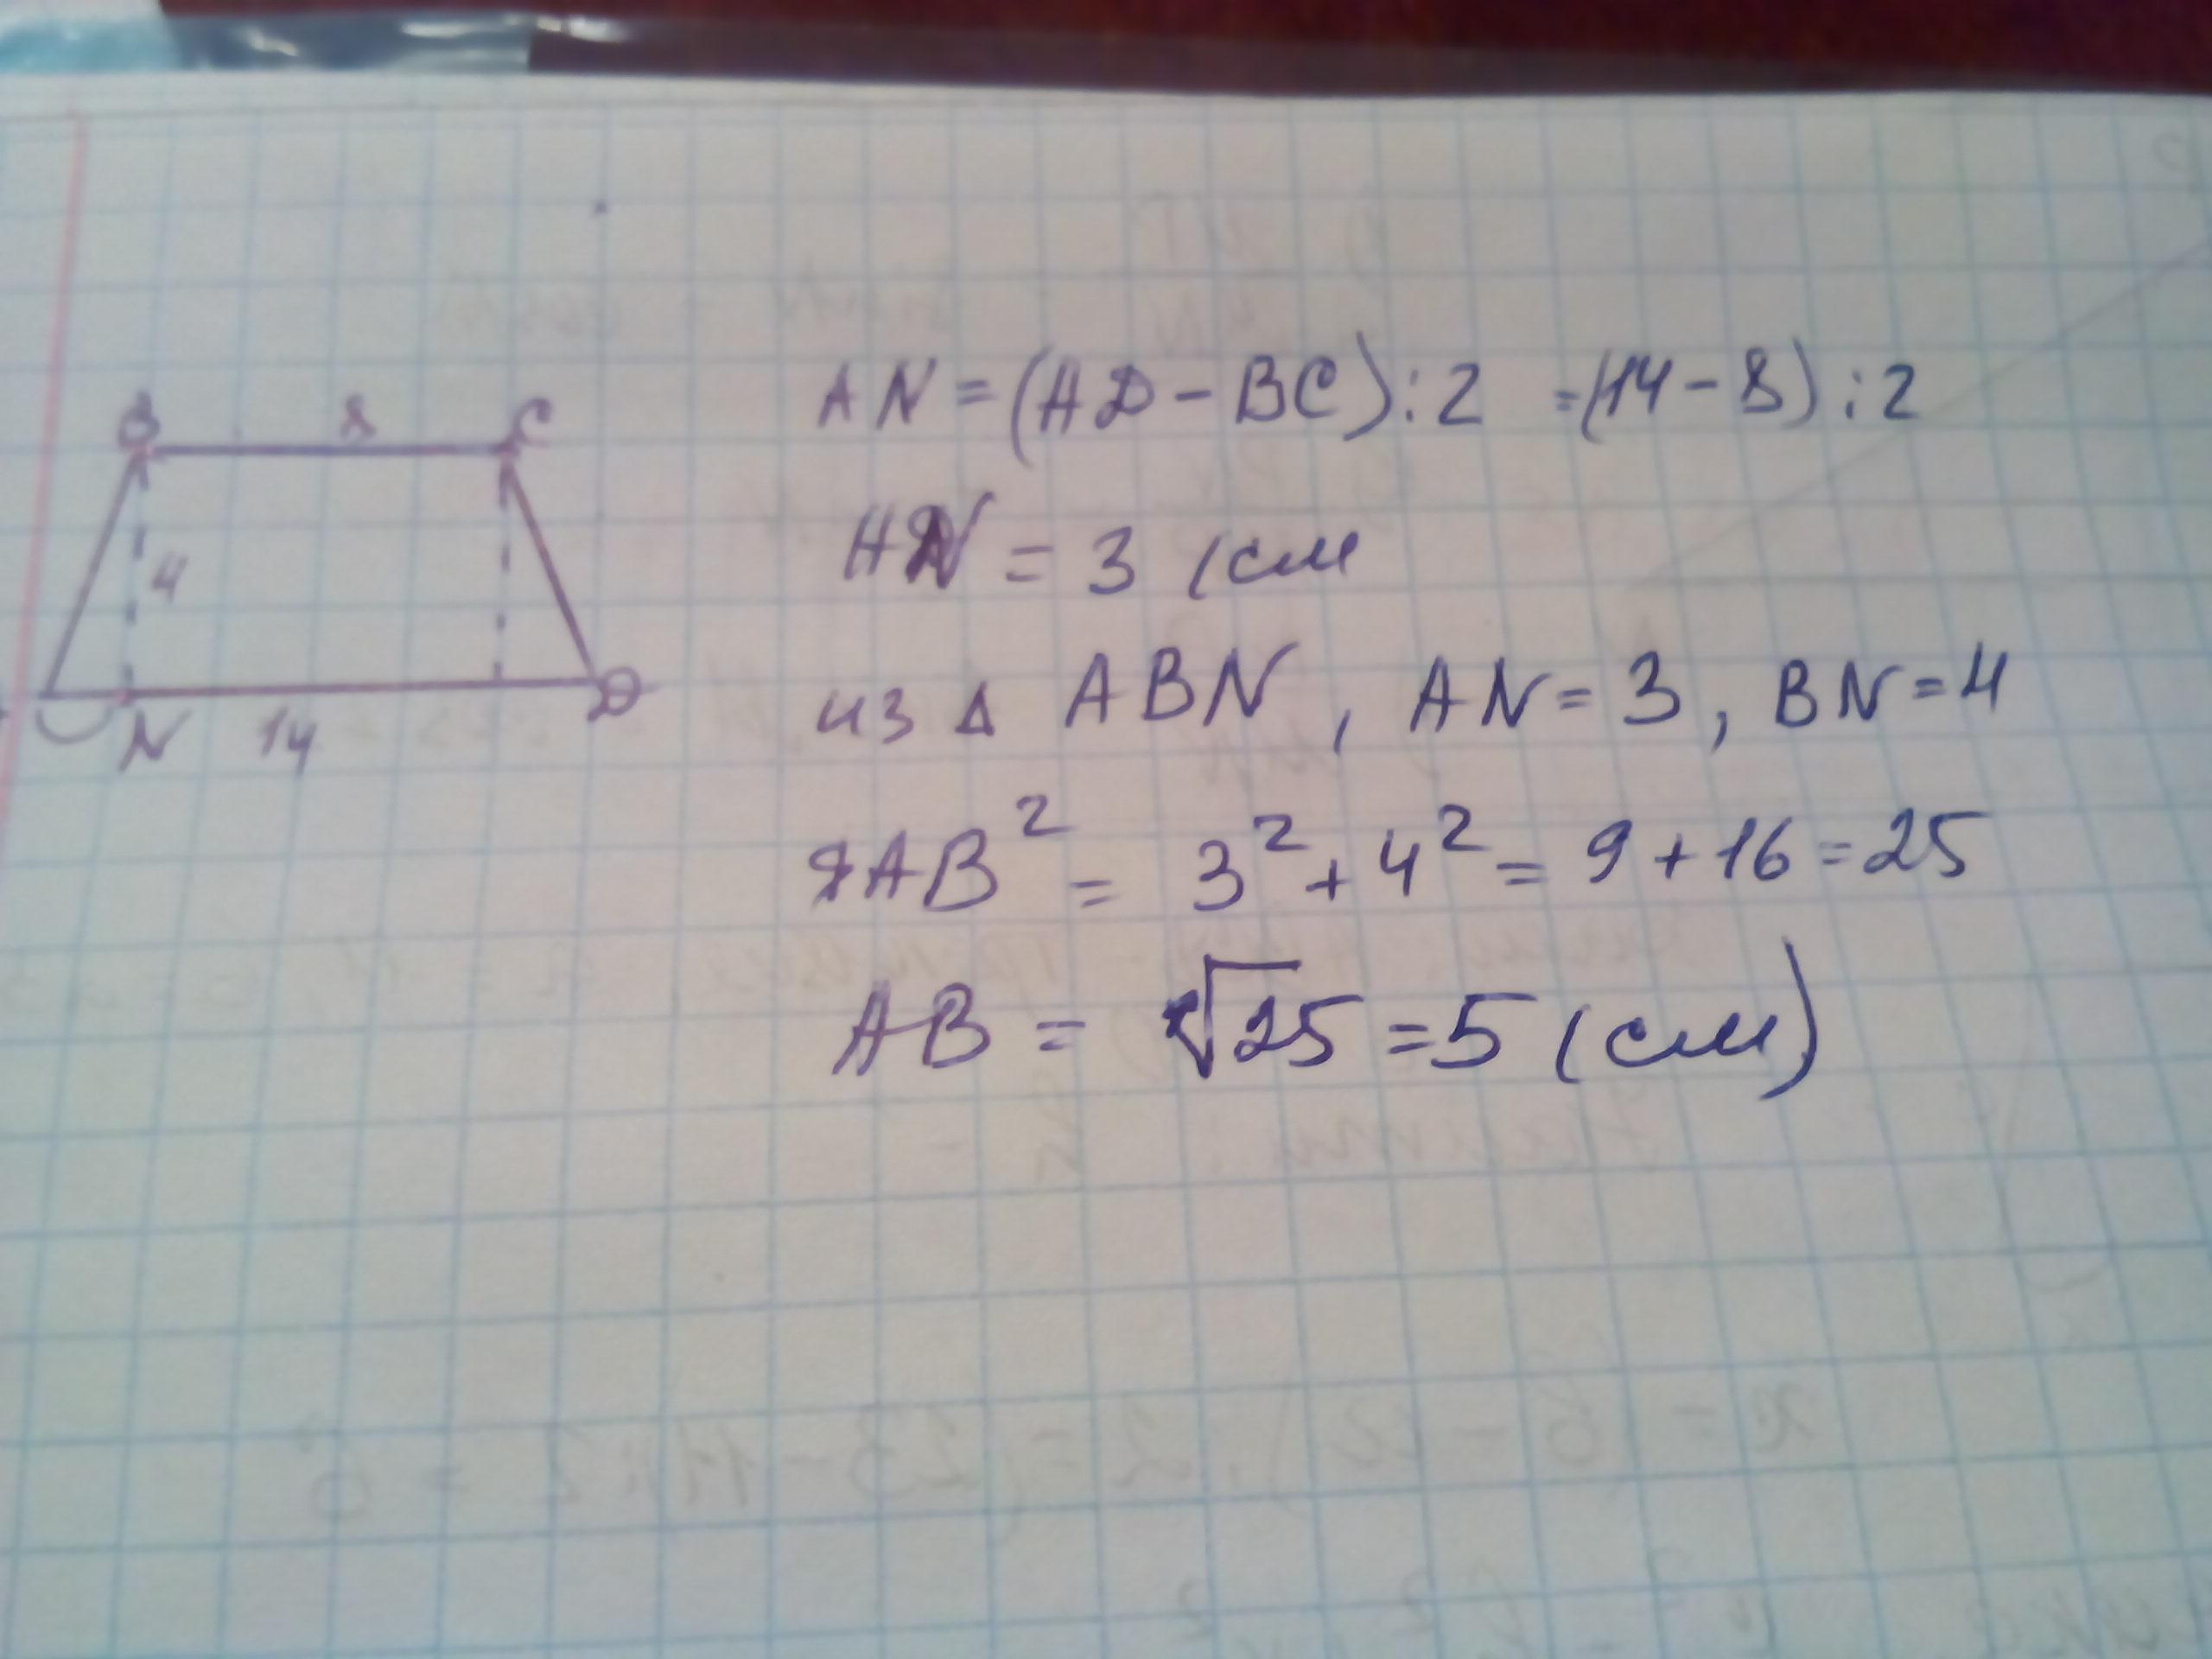 B 8 C
4
N 14 D
AN = (AD - BC) : 2 = (14 - 8) : 2
AN = 3 (см
из Δ ABN , AN = 3 , BN = 4
AB² = 3² + 4² = 9 + 16 = 25
AB = √25 = 5 (см)